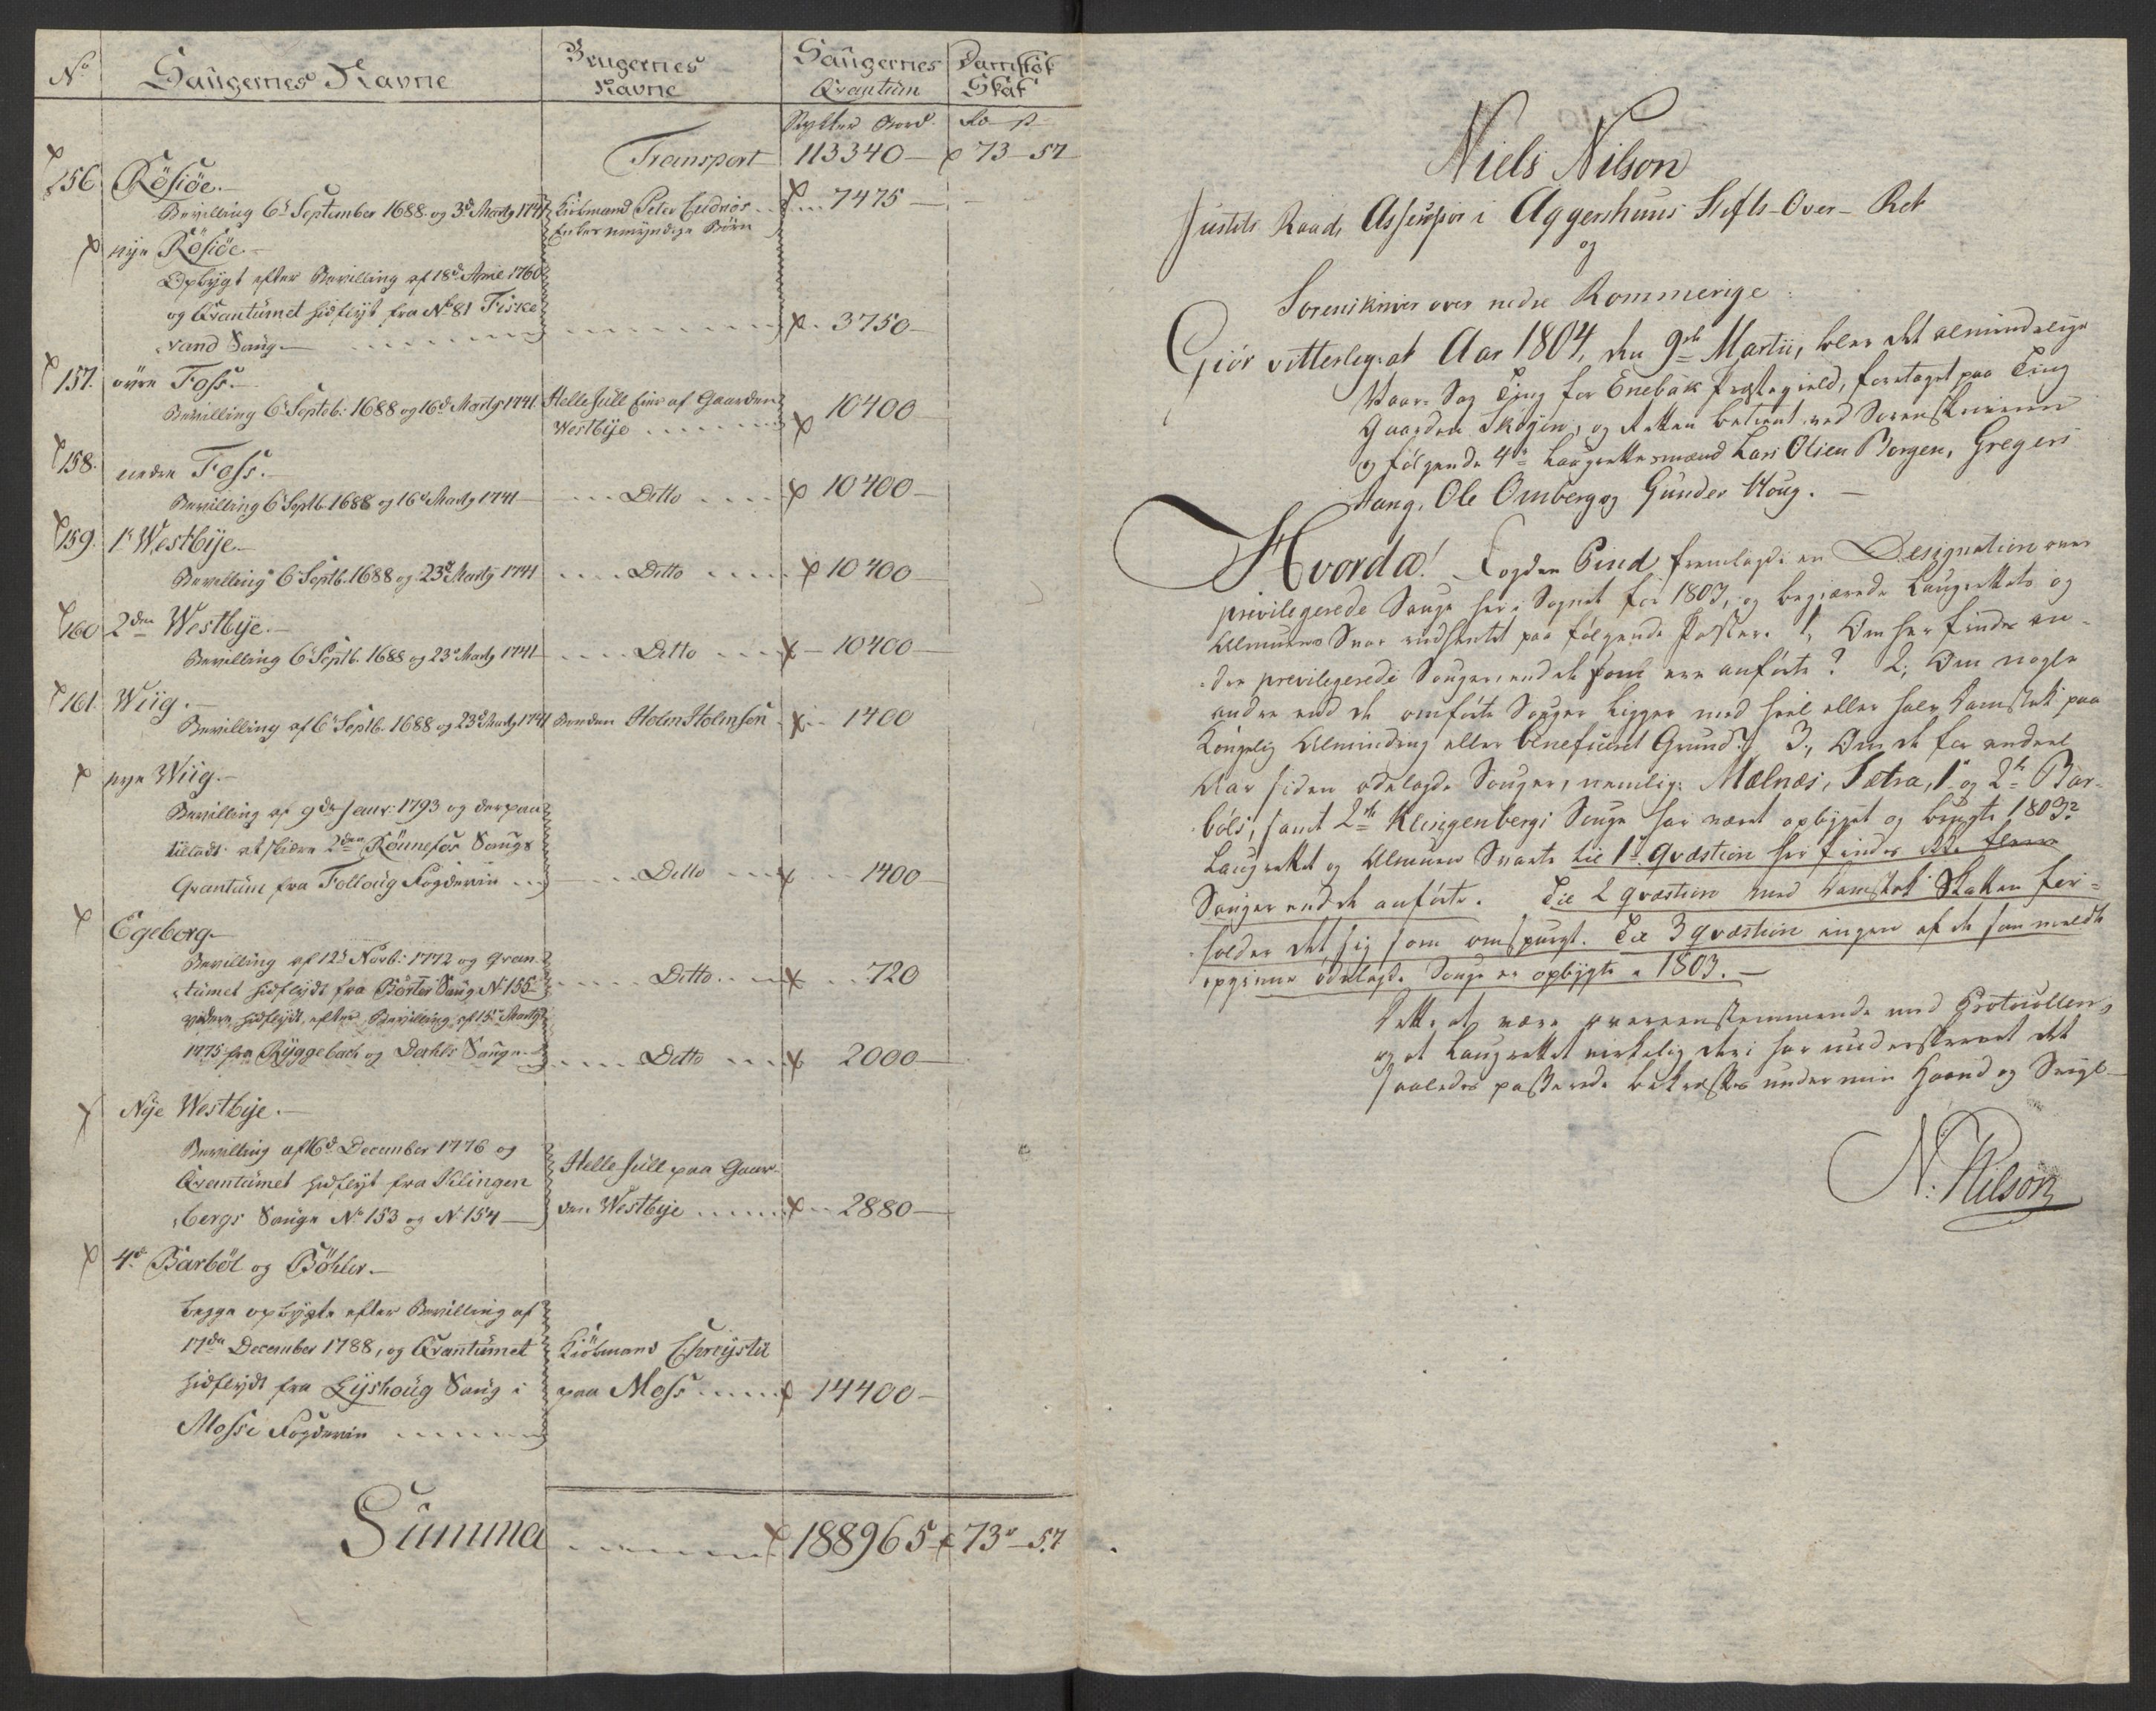 No
Saugernes Navne
Brugernes
Navne
Saugernes
Qvantum
Damstok
Skat
Stykker Bord
Rd ß
Transport 113340 73 57
156 Rösiöe
Bevilling 6d September 1688 og 3d Marty 1741 Kiöbmand Peter 7475
umyndige Börn
nye Rösiöe
Opbygt efter Bevilling af 18d April 1760
og Qvantumet hidflyt fra No 81 Fiske
vand Saug 3750
157. övre Foss.
Bevilling 6 Septeb: 1688 og 16d Marty 1741 Helle Jull Eier af Gaarden
Westbye 10400
158. nedre Foss.
Bevilling 6 Septb. 1688 og 16d Marty 1741 Ditto 10400
159. 1te Westbye
Bevilling 6 Septb. 1688 og 23d Marty 1741 Ditto 10400
160 2den Westbye.
Bevilling 6 Septb. 1688 og 23d Marty 1741 Ditto 10400
161. Wiig.
Bevilling af 6 Septb. 1688 og 23d Marty 1741 Bonden Holm Holmsen 1400
nye Wiig.
Bevilling af 9de Janv: 1793 og derpaa
tilladt at skiære 2den Rönnefos Saugs
Qvantum fra Folloug Fogderie Ditto 1400
Egeborg
Bevilling af 12d Novb: 1772 og Qvan
tumet hidflydt fra Börter Saug N. 155 Ditto 720
videre hidflydt, efter Bevilling af 15de Marty
1775 fra Ryggebech og Dahls Sauge Ditto 2000
Nye Westbye.
Bevilling af 16d December 1776 og
Qvantumet hidflyt fra Klingen
bergs Sauge No 153 og N. 154
Helle Jull paa Gaar
den Westbye 2880
4de Barböl og Böhler.
begge opbygte efter Bevilling af
17de December 1788, og Qvantumet
hidflydt fra Lyshoug Saug i
Mosse Fogderie
Kiöbmand Chrystie
paa Moss 14400
Summa 188965 73 57
Niels Nilson
Justits Raad, Assessor i Aggershuus Stifts-Over-Ret
og
Sorenskriver over nedre Rommerige
Giör vitterlig: at Aar 1804, den 9de Martii, blev det almindelige
Vaar-Sag Ting for Enebak Præstegield, foretaget paa Ting
Gaarden Skøyen, og Retten betient ved Sorenskriveren
og fölgende 4re Laugrettesmænd Lars Olsen Borgen, Gregers
Aang, Ole Omberg og Gunder Houg.
Hvorda! Fogden Pind fremlagde en Designation over
privilegerede Sauge her i Sognet for 1803, og begiærede Laugrettets og
Almuens Svar indhentet paa fölgende Poster. 1, Om her findes an-
dre previlegerede Sauger, end de som ere anförte? 2, Om nogle
andre end de omförte Sauger ligger med heel eller halv Damstok paa
Kongelig Alminding eller benificeret Grund? 3, Om de for endeel
Aar siden ödelagde Sauger, nemlig: Mælnæs, Sætra, 1te og 2de Bar-
böls, samt 2de Klingenbergs Sauge har været opbygget og brugte 1803?
Laugrettet og Almuen Svarte til 1te Qvæstion her findes ikke flere
Sauger end de anförte. Til 2 qvæstion med Damstok Skatten for-
holder det sig som omspurgt. Til 3 qvæstion ingen af de formeldte
ödelagde Sauge er opbygte i 1803.
Dette at være overeenstemmende med Protocollen,
og at Laugrettet virkelig der i har underskrevet det
saaledes passerede bekræftes under min Haand og Seigl
N: Nilson